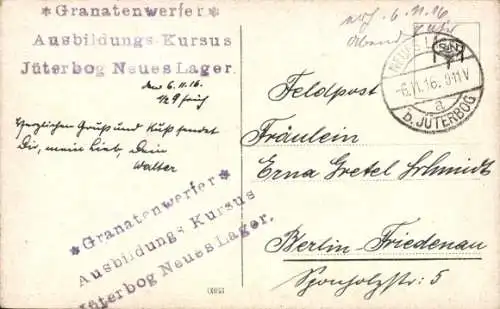 *Granatenwerfer*
Ausbildungs-Kursus
Jüterbog Neues Lager.
den 6.11.16
Herzlichen Gruß und Kuß sendet
Dir, mein Lieb, Dein
Walter
*Granatenwerfer*
Ausbildungs-Kursus
Jüterbog Neues Lager.
6.11.16
NEUES LAGER
-6.11.16. 9-11V
a
b. JÜTERBOG
Feldpost
Fräulein
Erna Gretel Schmidt
Berlin-Friedenau
Sponholzstr: 5